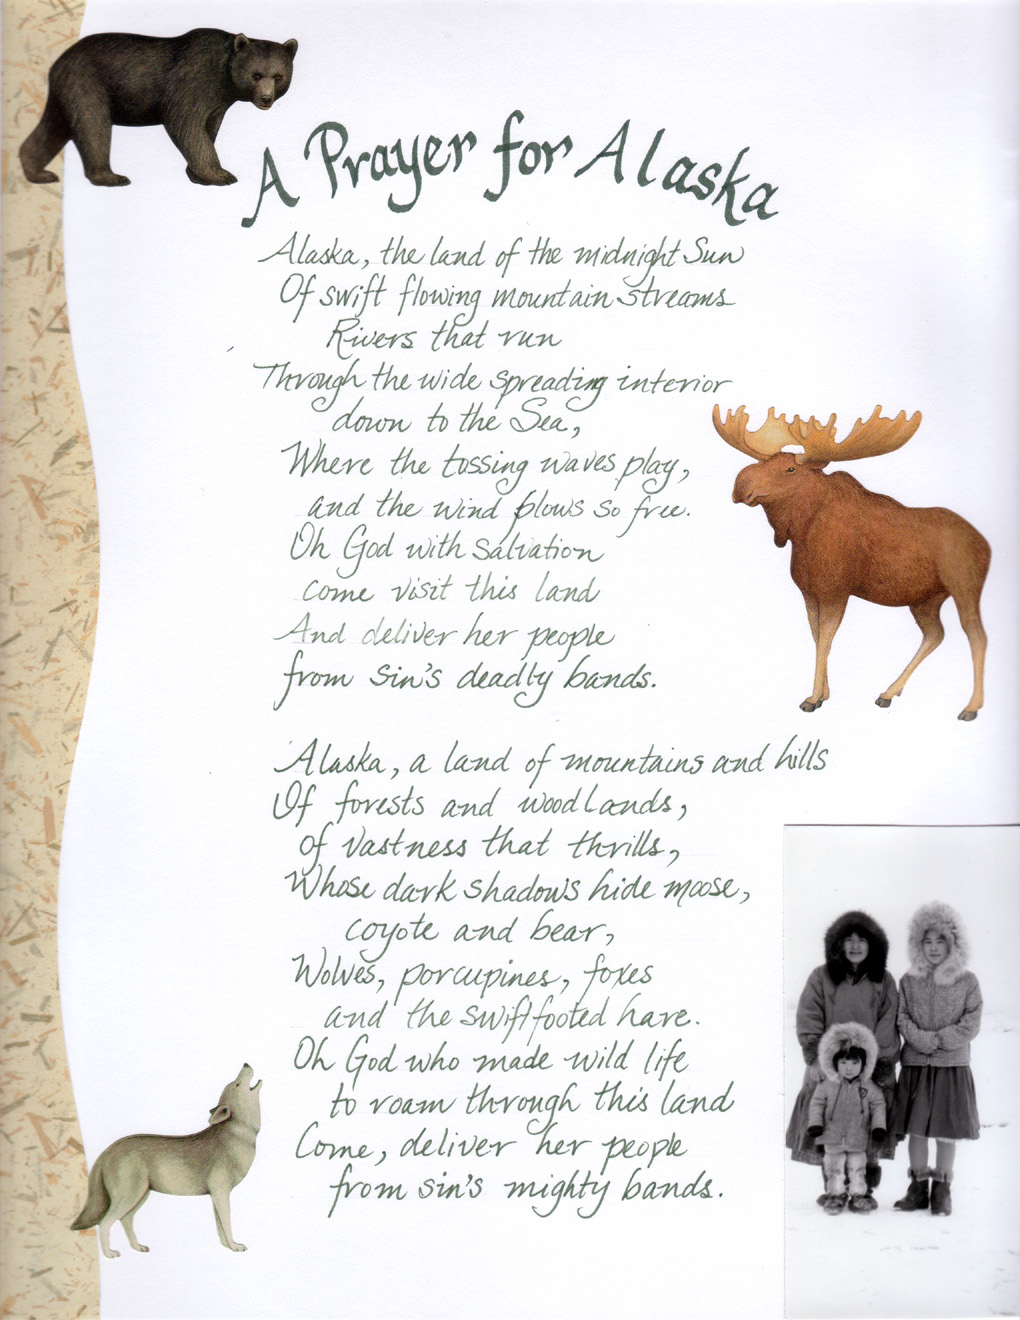 A Prayer for Alaska
Alaska, the land of the midnight Sun
Of swift flowing mountain streams
Rivers that run
Through the wide spreading interior
down to the Sea,
Where the tossing waves play,
and the wind blows so free.
Oh God with Salvation
come visit this land
And deliver her people
from sin's deadly bands.
Alaska, a land of mountains and hills
Of forests and woodlands,
of vastness that thrills,
Whose dark shadows hide moose,
coyote and bear,
Wolves, porcupines, foxes
and the swift footed hare.
Oh God who made wild life
to roam through this land
Come, deliver her people
from sin's mighty bands.